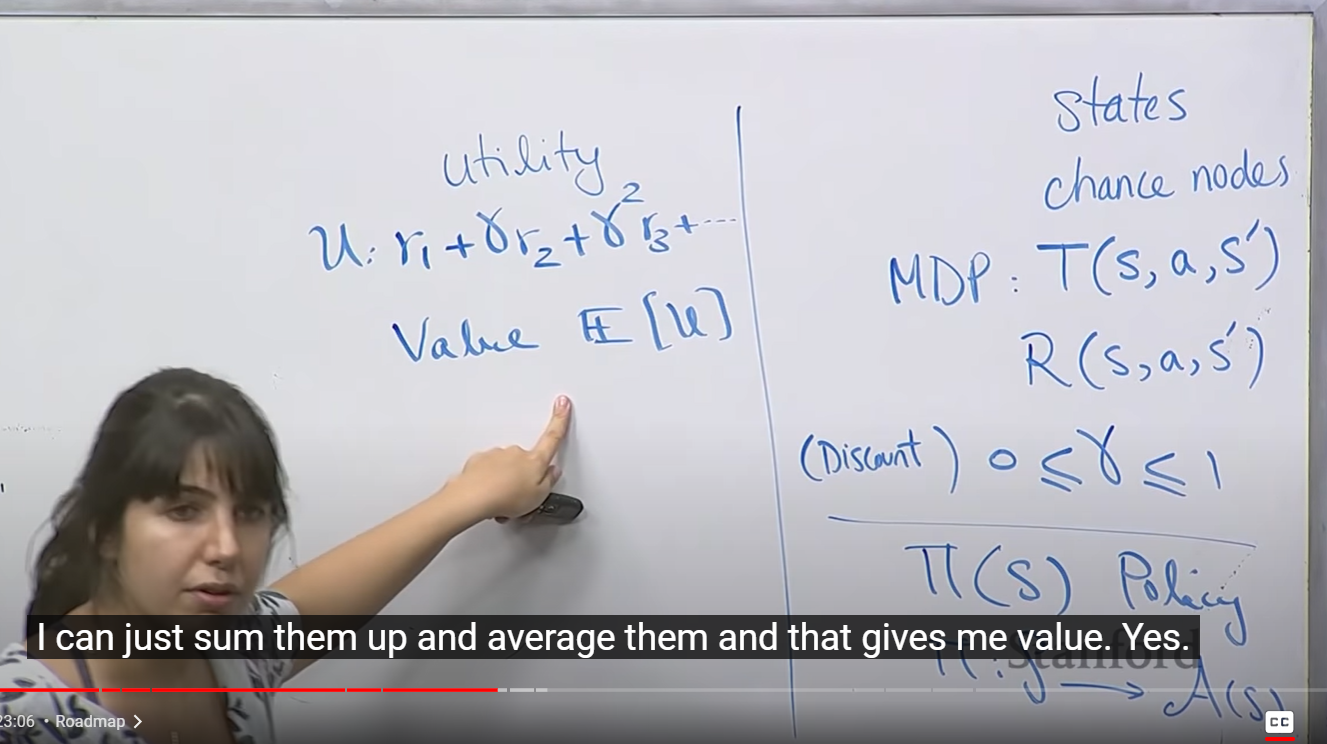 utility
U: r₁ + γr₂ + γ²r₃ + ....
Value 𝔼[U]
states
chance nodes
MDP: T(s, a, s')
R(s, a, s')
(Discount) 0 ≤ γ ≤ 1
π(s) Policy
π: → A(s)
I can just sum them up and average them and that gives me value. Yes.
Stanford
23:06 • Roadmap >
CC